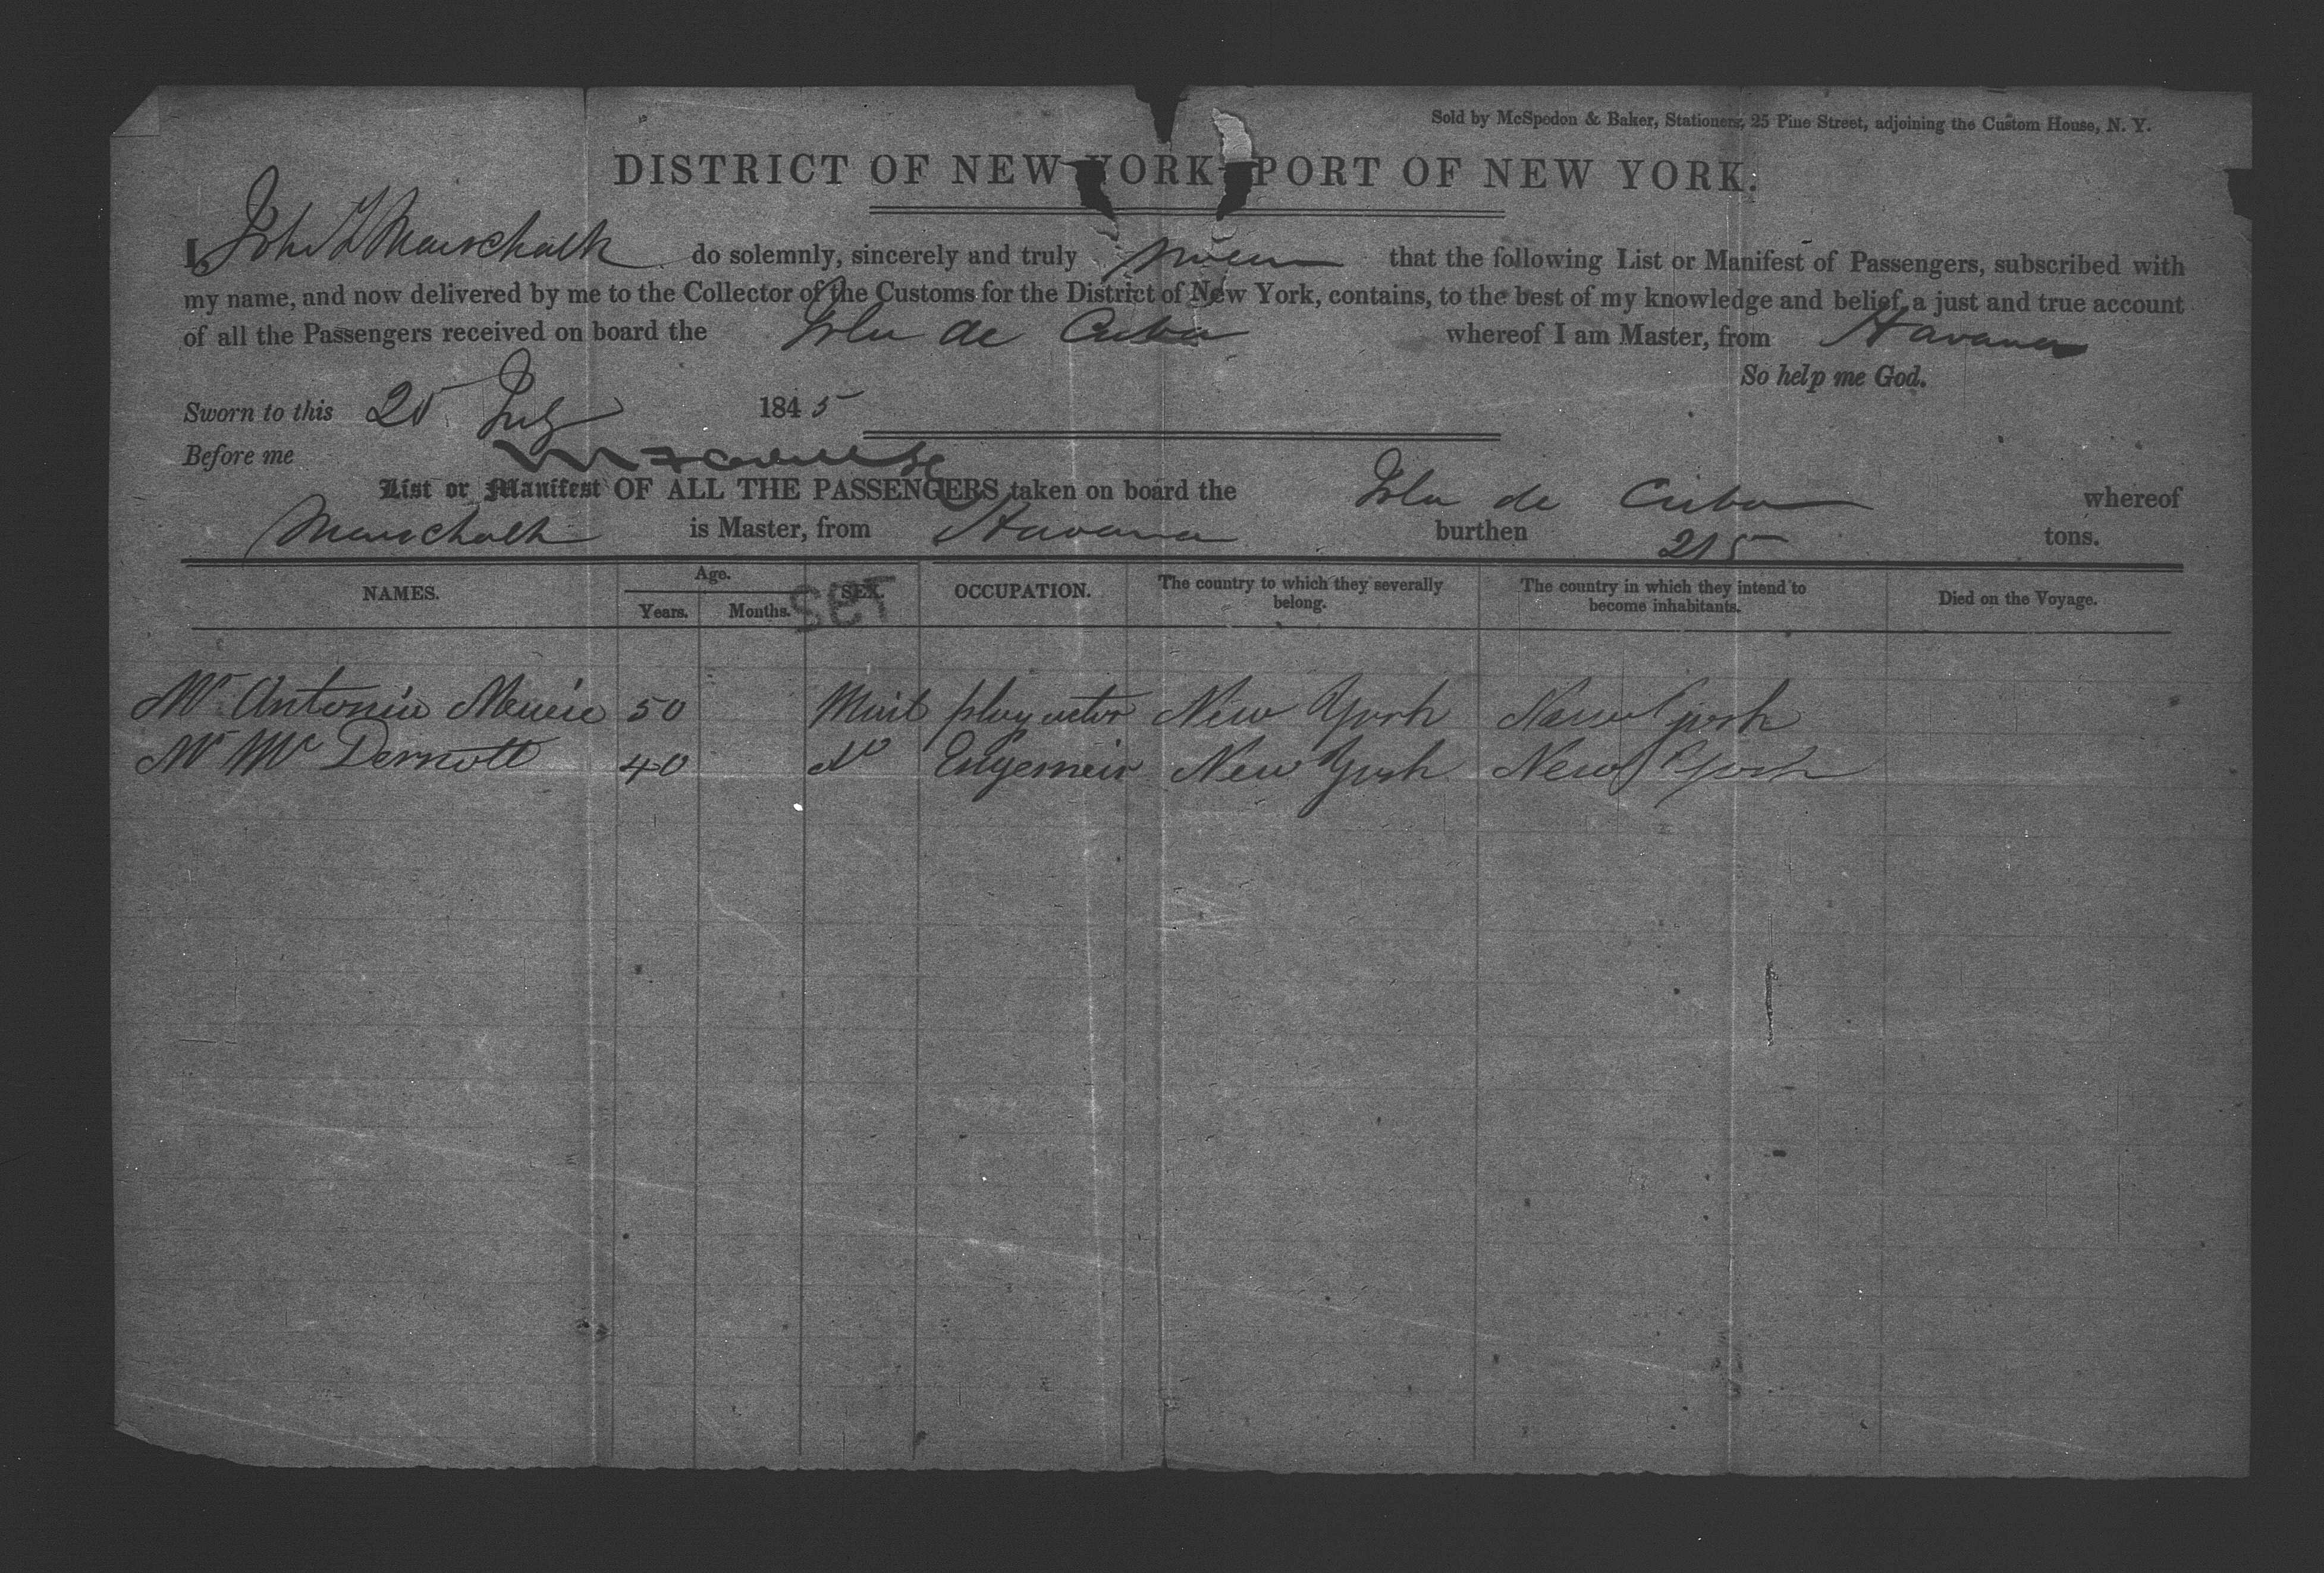 Sold by McSpedon & Baker, Stationers, 25 Pine Street, adjoining the Custom House, N. Y.
DISTRICT OF NEW YORK—PORT OF NEW YORK.
I, John Marschalk do solemnly, sincerely and truly swear that the following List or Manifest of Passengers, subscribed with
my name, and now delivered by me to the Collector of the Customs for the District of New York, contains, to the best of my knowledge and belief, a just and true account
of all the Passengers received on board the Isla de Cuba whereof I am Master, from Havana
So help me God.
Sworn to this July 1845
Before me
List or Manifest OF ALL THE PASSENGERS taken on board the Isla de Cuba whereof
Marschalk is Master, from Havana burthen 215 tons.
NAMES. Age. Years. Months. SEX. OCCUPATION. The country to which they severally belong. The country in which they intend to become inhabitants. Died on the Voyage.
SBT
Mr Antonio 50 play actor New York New York
Mr Mc Dermott 40 Do New York New York